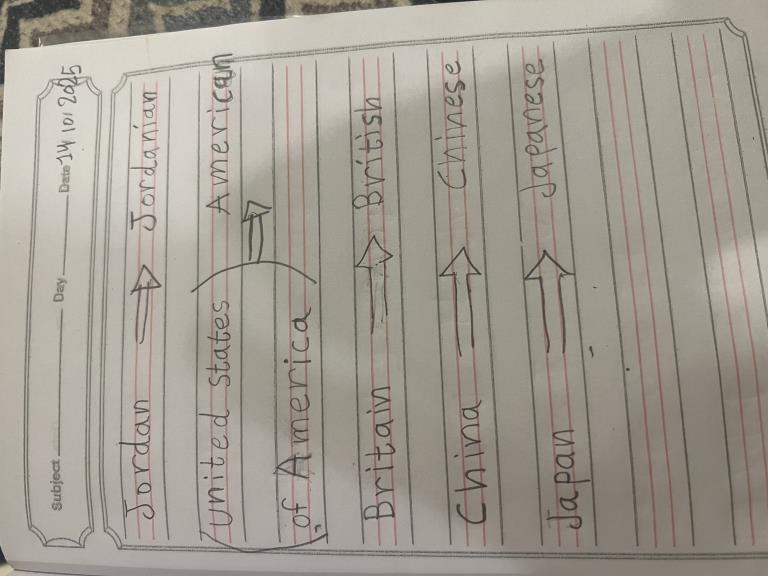 Subject Day Date 14/10/2025
Jordan ⇒ Jordanian
(United States American
of America) ⇒
Britain ⇒ British
China ⇒ Chinese
Japan ⇒ Japanese